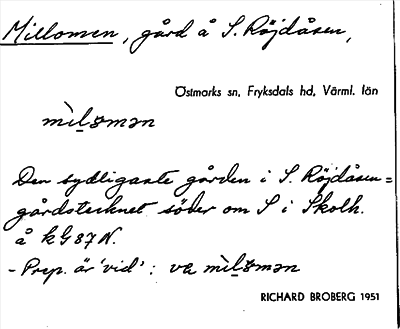 Millomen, gård å S. Röjdåsen,
Östmarks sn, Fryksdals hd, Värml. län
mìlωmən
Den sydligaste gården i S. Röjdåsen=
gårdstecknet söder om S i Skolh.
å kG 87 N.
- Prep. är 'vid': va mìlωmən
RICHARD BROBERG 1951